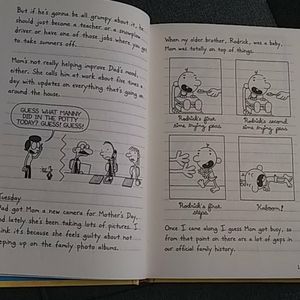 But if he's gonna be all grumpy about it, he
should just become a teacher or a snowplow
driver or have one of those jobs where you get
to take summers off.
Mom's not really helping improve Dad's mood,
either. She calls him at work about five times a
day with updates on everything that's going on
around the house.
GUESS WHAT MANNY
DID IN THE POTTY
TODAY? GUESS! GUESS!
Tuesday
Dad got Mom a new camera for Mother's Day,
and lately she's been taking lots of pictures. I
think it's because she feels guilty about not
keeping up on the family photo albums.
When my older brother, Rodrick, was a baby,
Mom was totally on top of things.
Rodrick's first
time trying peas
Rodrick's second
time trying peas
Rodrick's first
steps
Kaboom!
Once I came along I guess Mom got busy, so
from that point on there are a lot of gaps in
our official family history.